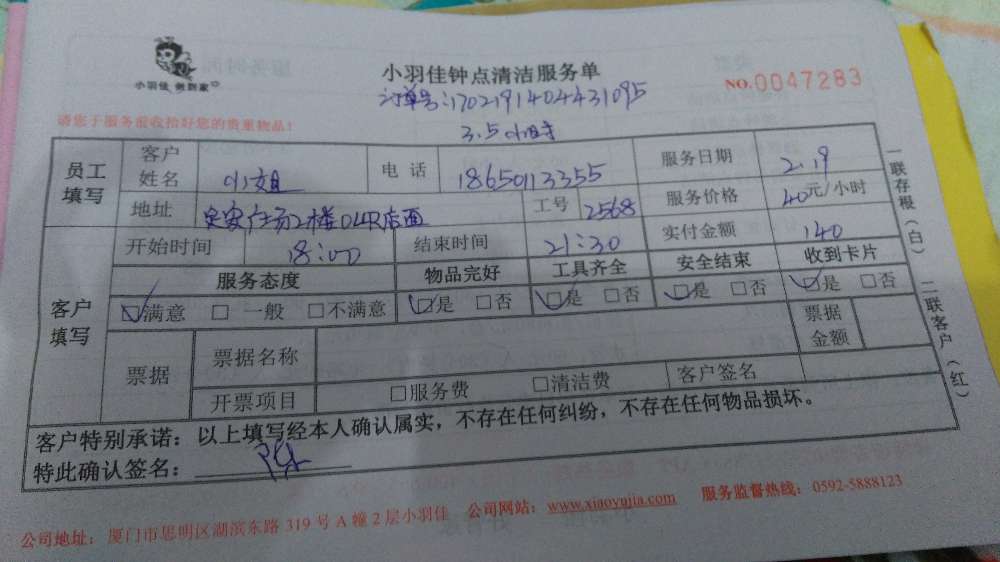 小羽佳 做到家
小羽佳钟点清洁服务单
NO.0047283
订单号:1702191404431095
请您于服务前收拾好您的贵重物品!
3.5小时
员工填写 客户姓名 小姐 电话 18650113355 服务日期 2.19
地址 安广场2楼 店面 工号 2568 服务价格 40元/小时
客户填写 开始时间 18:00 结束时间 21:30 实付金额 140
服务态度 物品完好 工具齐全 安全结束 收到卡片
☑满意 □一般 □不满意 ☑是 □否 ☑是 □否 ☑是 □否 ☑是 □否
票据 票据名称 票据金额
开票项目 □服务费 □清洁费 客户签名
客户特别承诺:以上填写经本人确认属实,不存在任何纠纷,不存在任何物品损坏。
特此确认签名:
一联存根(白) 二联客户(红)
公司地址:厦门市思明区湖滨东路 319 号 A 幢 2 层小羽佳 公司网站:www.xiaoyujia.com 服务监督热线:0592-5888123